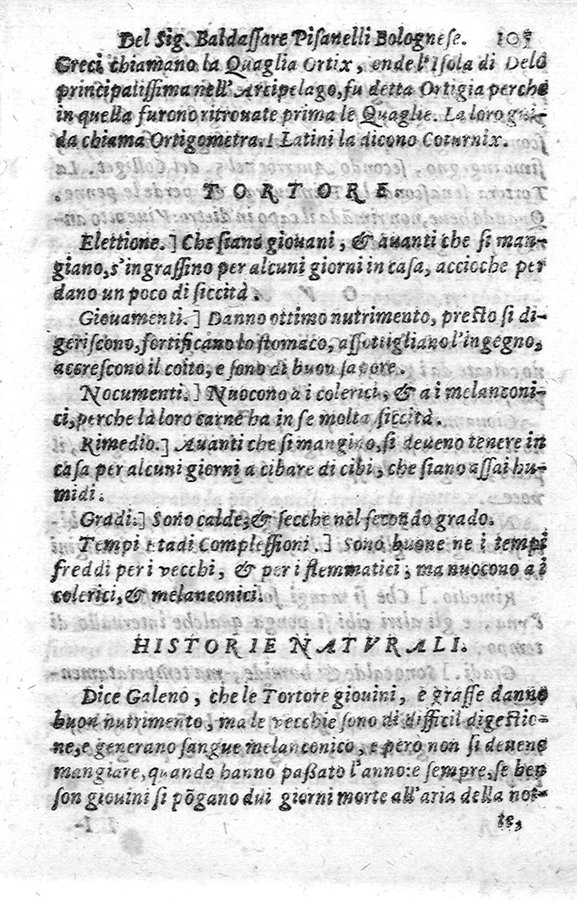 Del Sig. Baldaſſare Piſanelli Bologneſe. 105
Greci chiamano la Quaglia Ortix, onde l'Iſola di Delo
principaliſſima nell'Arcipelago, fu detta Ortigia perche
in quella furono ritrouate prima le Quaglie. La loro gui-
da chiama Ortigometra. I Latini la dicono Coturnix.
TORTORE
Elettione.] Che ſiano giouani, & auanti che ſi man-
giano, s'ingraſſino per alcuni giorni in caſa, accioche per
dano un poco di ſiccità.
Giouamenti.] Danno ottimo nutrimento, preſto ſi di-
geriſcono, fortificano lo ſtomaco, aſſottigliano l'ingegno,
accreſcono il coito, e ſono di buon ſapore.
Nocumenti.] Nuocono a i colerici, & a i melanconi-
ci, perche la loro carne ha in ſe molta ſiccità.
Rimedio.] Auanti che ſi mangino, ſi deueno tenere in
caſa per alcuni giorni a cibare di cibi, che ſiano aſſai hu-
midi.
Gradi.] Sono calde, & ſecche nel ſecondo grado.
Tempi etadi Compleſſioni.] Sono buone ne i tempi
freddi per i vecchi, & per i flemmatici; ma nuocono a i
colerici, & melanconici.
HISTORIE NATVRALI.
Dice Galeno, che le Tortore giouini, e graſſe danno
buon nutrimento, ma le vecchie ſono di difficil digeſtio-
ne, e generano ſangue melanconico, e però non ſi deueno
mangiare, quando hanno paßato l'anno: e ſempre, ſe ben
ſon giouini ſi põgano dui giorni morte all'aria della not-
te,